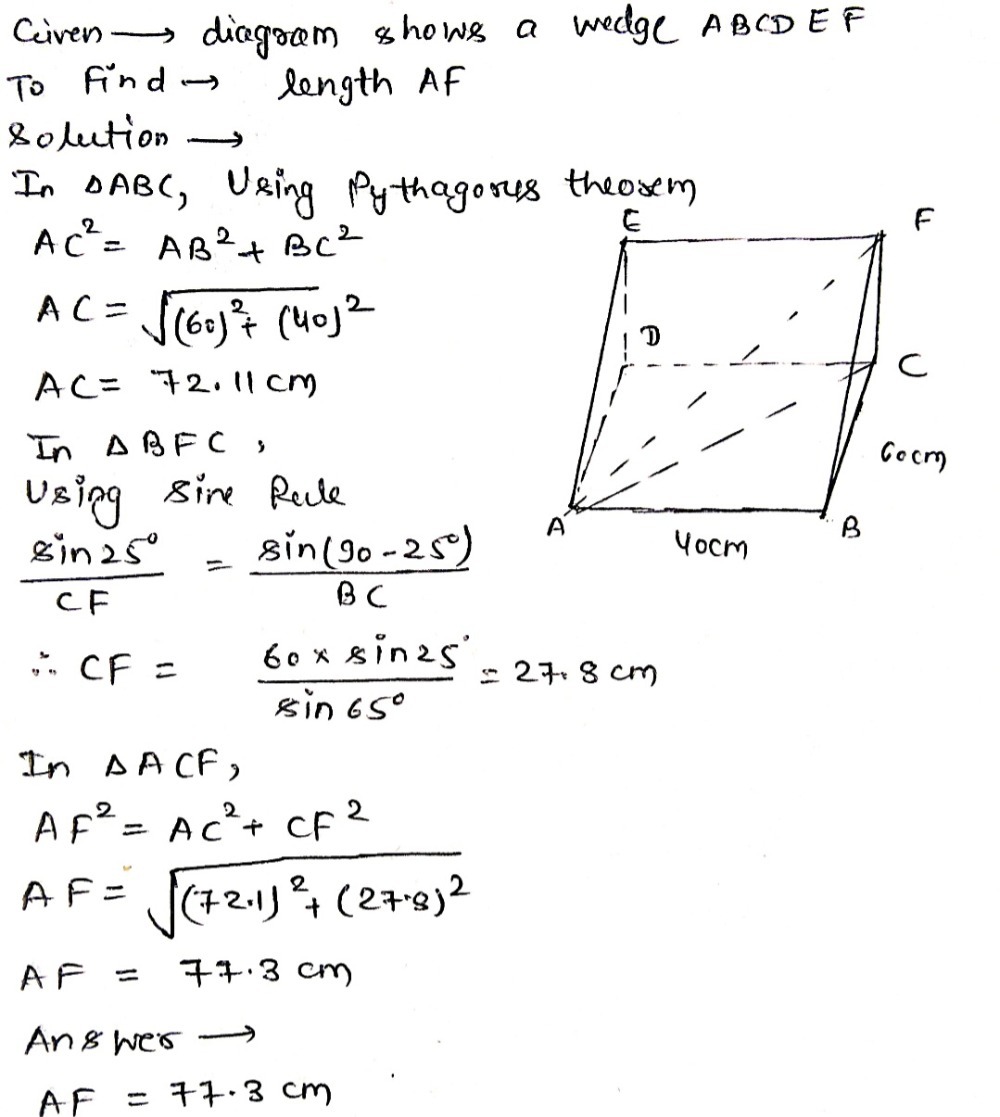 Given → diagram shows a wedge ABCDEF
To Find → length AF
Solution →
In ΔABC, Using Pythagorus theorem
AC² = AB² + BC²
AC = √(60)² + (40)²
AC = 72.11 cm
In ΔBFC,
Using Sine Rule
sin 25° / CF = sin(90 - 25°) / BC
∴ CF = 60 x sin 25° / sin 65° = 27.8 cm
In ΔACF,
AF² = AC² + CF²
AF = √(72.1)² + (27.8)²
AF = 77.3 cm
Answer →
AF = 77.3 cm
E F
D
C
60cm
A B
40cm